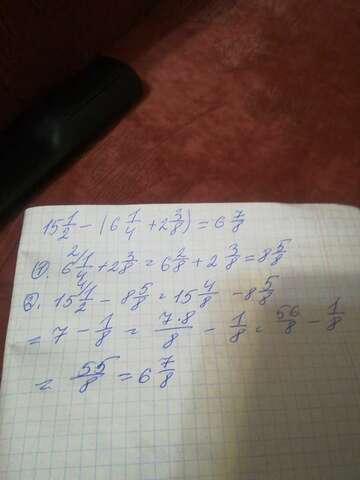 15 1/2 - (6 1/4 + 2 3/8) = 6 7/8
1). 6 2/ 1/4 + 2 3/8 = 6 2/8 + 2 3/8 = 8 5/8
2). 15 4/ 1/2 - 8 5/8 = 15 4/8 - 8 5/8
= 7 - 1/8 = 7·8/8 - 1/8 = 56/8 - 1/8
= 55/8 = 6 7/8